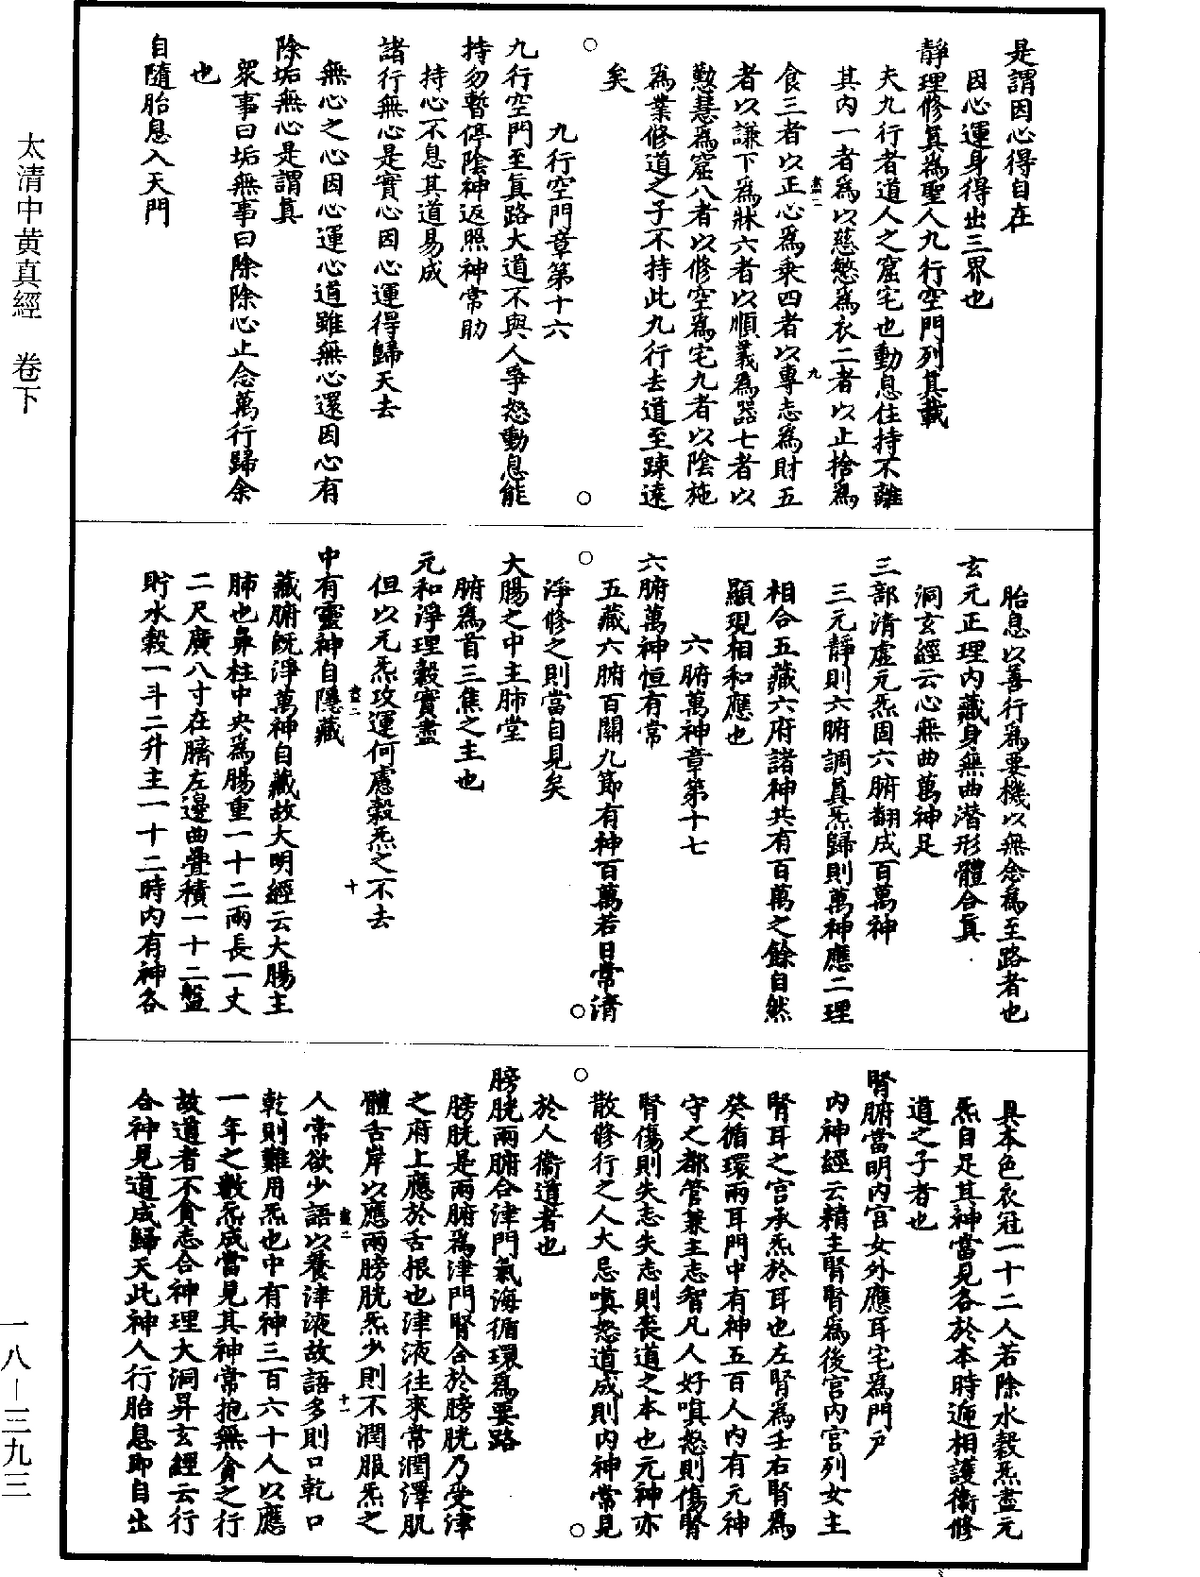 是謂因心得自在
因心運身得出三界也
靜理修真為聖人九行空門列真載
夫九行者道人之窟宅也動息住持不離
其內一者為以慈慜為衣二者以止捨為
食三者以正心為乘四者以專志為財五
者以謙下為牀六者以順義為器七者以
勤慧為窟八者以修空為宅九者以陰施
為業修道之子不持此九行去道至踈遠
矣
九行空門章第十六
九行空門至真路大道不與人爭怒動息能
持勿暫停陰神返照神常助
持心不息其道易成
諸行無心是實心因心運得歸天去
無心之心因心運心道雖無心還因心有
除垢無心是謂真
眾事曰垢無事曰除除心止念萬行歸余
也
自隨胎息入天門
胎息以善行為要機以無念為至路者也
玄元正理內藏身無曲潛形體合真
洞玄經云心無曲萬神足
三部清虛元炁固六腑翻成百萬神
三元靜則六腑調真炁歸則萬神應二理
相合五藏六府諸神共有百萬之餘自然
顯現相和應也
六腑萬神章第十七
六腑萬神恒有常
五藏六腑百關九節有神百萬若日常清
淨修之則當自見矣
大腸之中主肺堂
腑為首三焦之主也
元和淨理穀實盡
但以元炁攻運何慮穀炁之不去
中有靈神自隱藏
藏腑既淨萬神自藏故大明經云大腸主
肺也鼻柱中央為腸重一十二兩長一丈
二尺廣八寸在臍左邊曲疊積一十二盤
貯水穀一斗二升主一十二時內有神各
具本色衣冠一十二人若除水穀炁盡元
炁自足其神當見各於本時遞相護衛修
道之子者也
腎腑當明內宮女外應耳宅為門戶
內神經云精主腎腎為後宮內宮列女主
腎耳之宮承炁於耳也左腎為壬右腎為
癸循環兩耳門中有神五百人內有元神
守之都管兼主志智凡人好嗔怒則傷腎
腎傷則失志失志則喪道之本也元神亦
散修行之人大忌嗔怒道成則內神常見
於人衛道者也
膀胱兩腑合津門氣海循環為要路
膀胱是兩腑為津門腎合於膀胱乃受津
之府上應於舌根也津液往來常潤澤肌
體舌岸以應兩膀胱炁少則不潤服炁之
人常欲少語以養津液故語多則口乾口
乾則難用炁也中有神三百六十人以應
一年之數炁成當見其神常抱無貪之行
故道者不貪志合神理大洞昇玄經云行
合神見道成歸天此神人行胎息即自出
太清中黃真經　卷下
一八—三九三